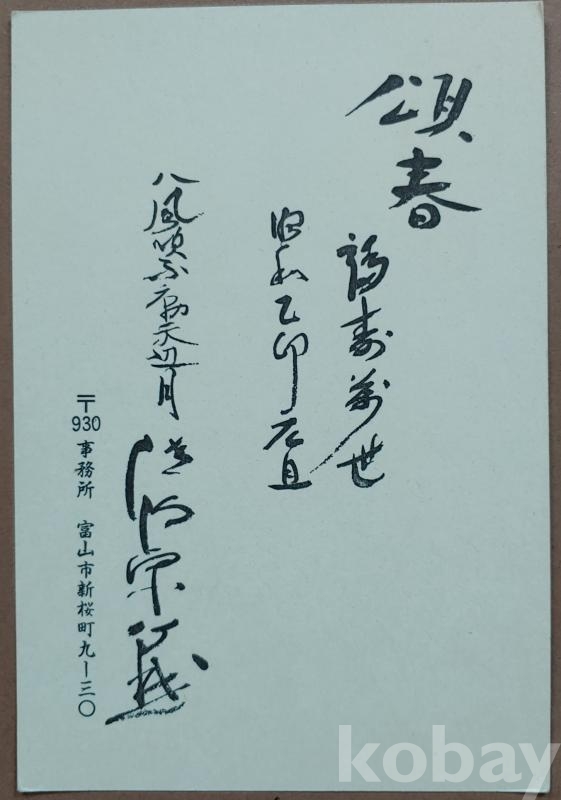 頌春
福寿萬世
昭和乙卯元旦
八風吹不動天辺月
宗義
〒930 事務所 富山市新桜町九ー三〇
kobay